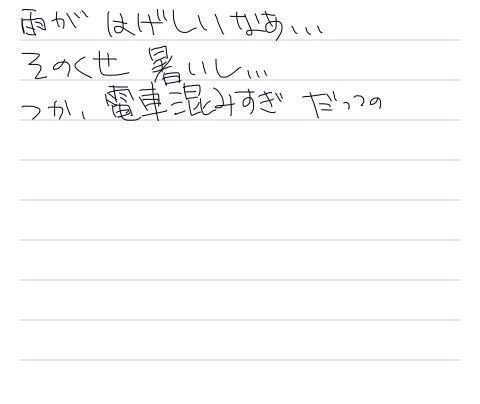 雨が はげしいなあ...
そのくせ 暑いし...
つか、電車混みすぎ だっつの